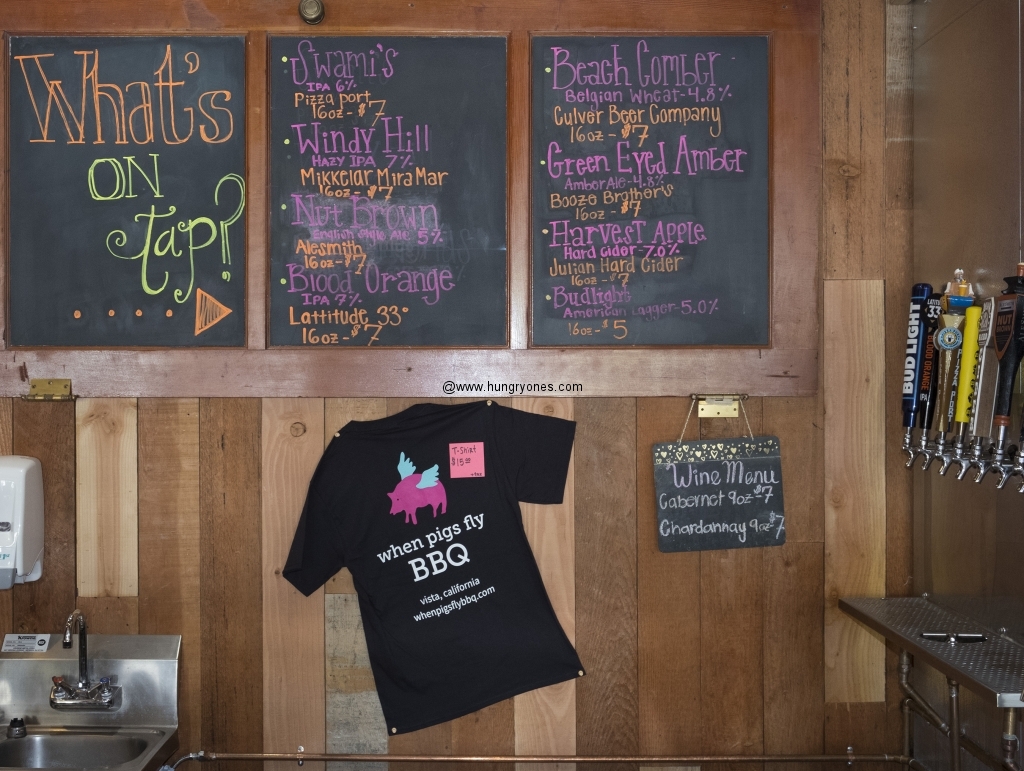 What's
ON
tap?
Swami's
IPA 6%
Pizza port
16oz - $7
Windy Hill
HAZY IPA 7%
Mikkelar Mira Mar
16oz - $7
Nut Brown
English Style Ale 5%
Alesmith
16oz - $7
Blood Orange
IPA 7%
Lattitude 33°
16oz - $7
Beach Comber
Belgian Wheat - 4.8%
Culver Beer Company
16oz - $7
Green Eyed Amber
Amber Ale - 4.8%
Booze Brothers
16oz - $7
Harvest Apple
Hard Cider - 7.0%
Julian Hard Cider
16oz - $7
Budlight
American Lagger - 5.0%
16oz - $5
@www.hungryones.com
T-Shirt
$15.00
when pigs fly
BBQ
vista, california
whenpigsflybbq.com
Wine Menu
Cabernet 9oz - $7
Chardannay 9oz $7
BUD LIGHT
33°
BLOOD ORANGE
PIZZA PORT
NUT BROWN